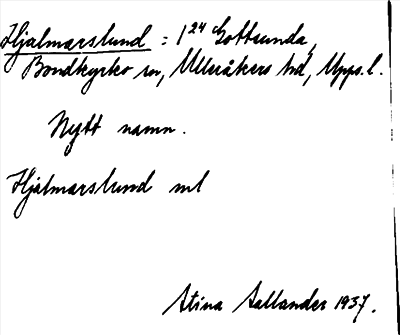 Hjälmarslund : 1²⁴ Gottsunda,
Bondkyrko sn, Ulleråkers hd, Upps. l.
Nytt namn.
Hjälmarslund
Stina Sallander 1937.